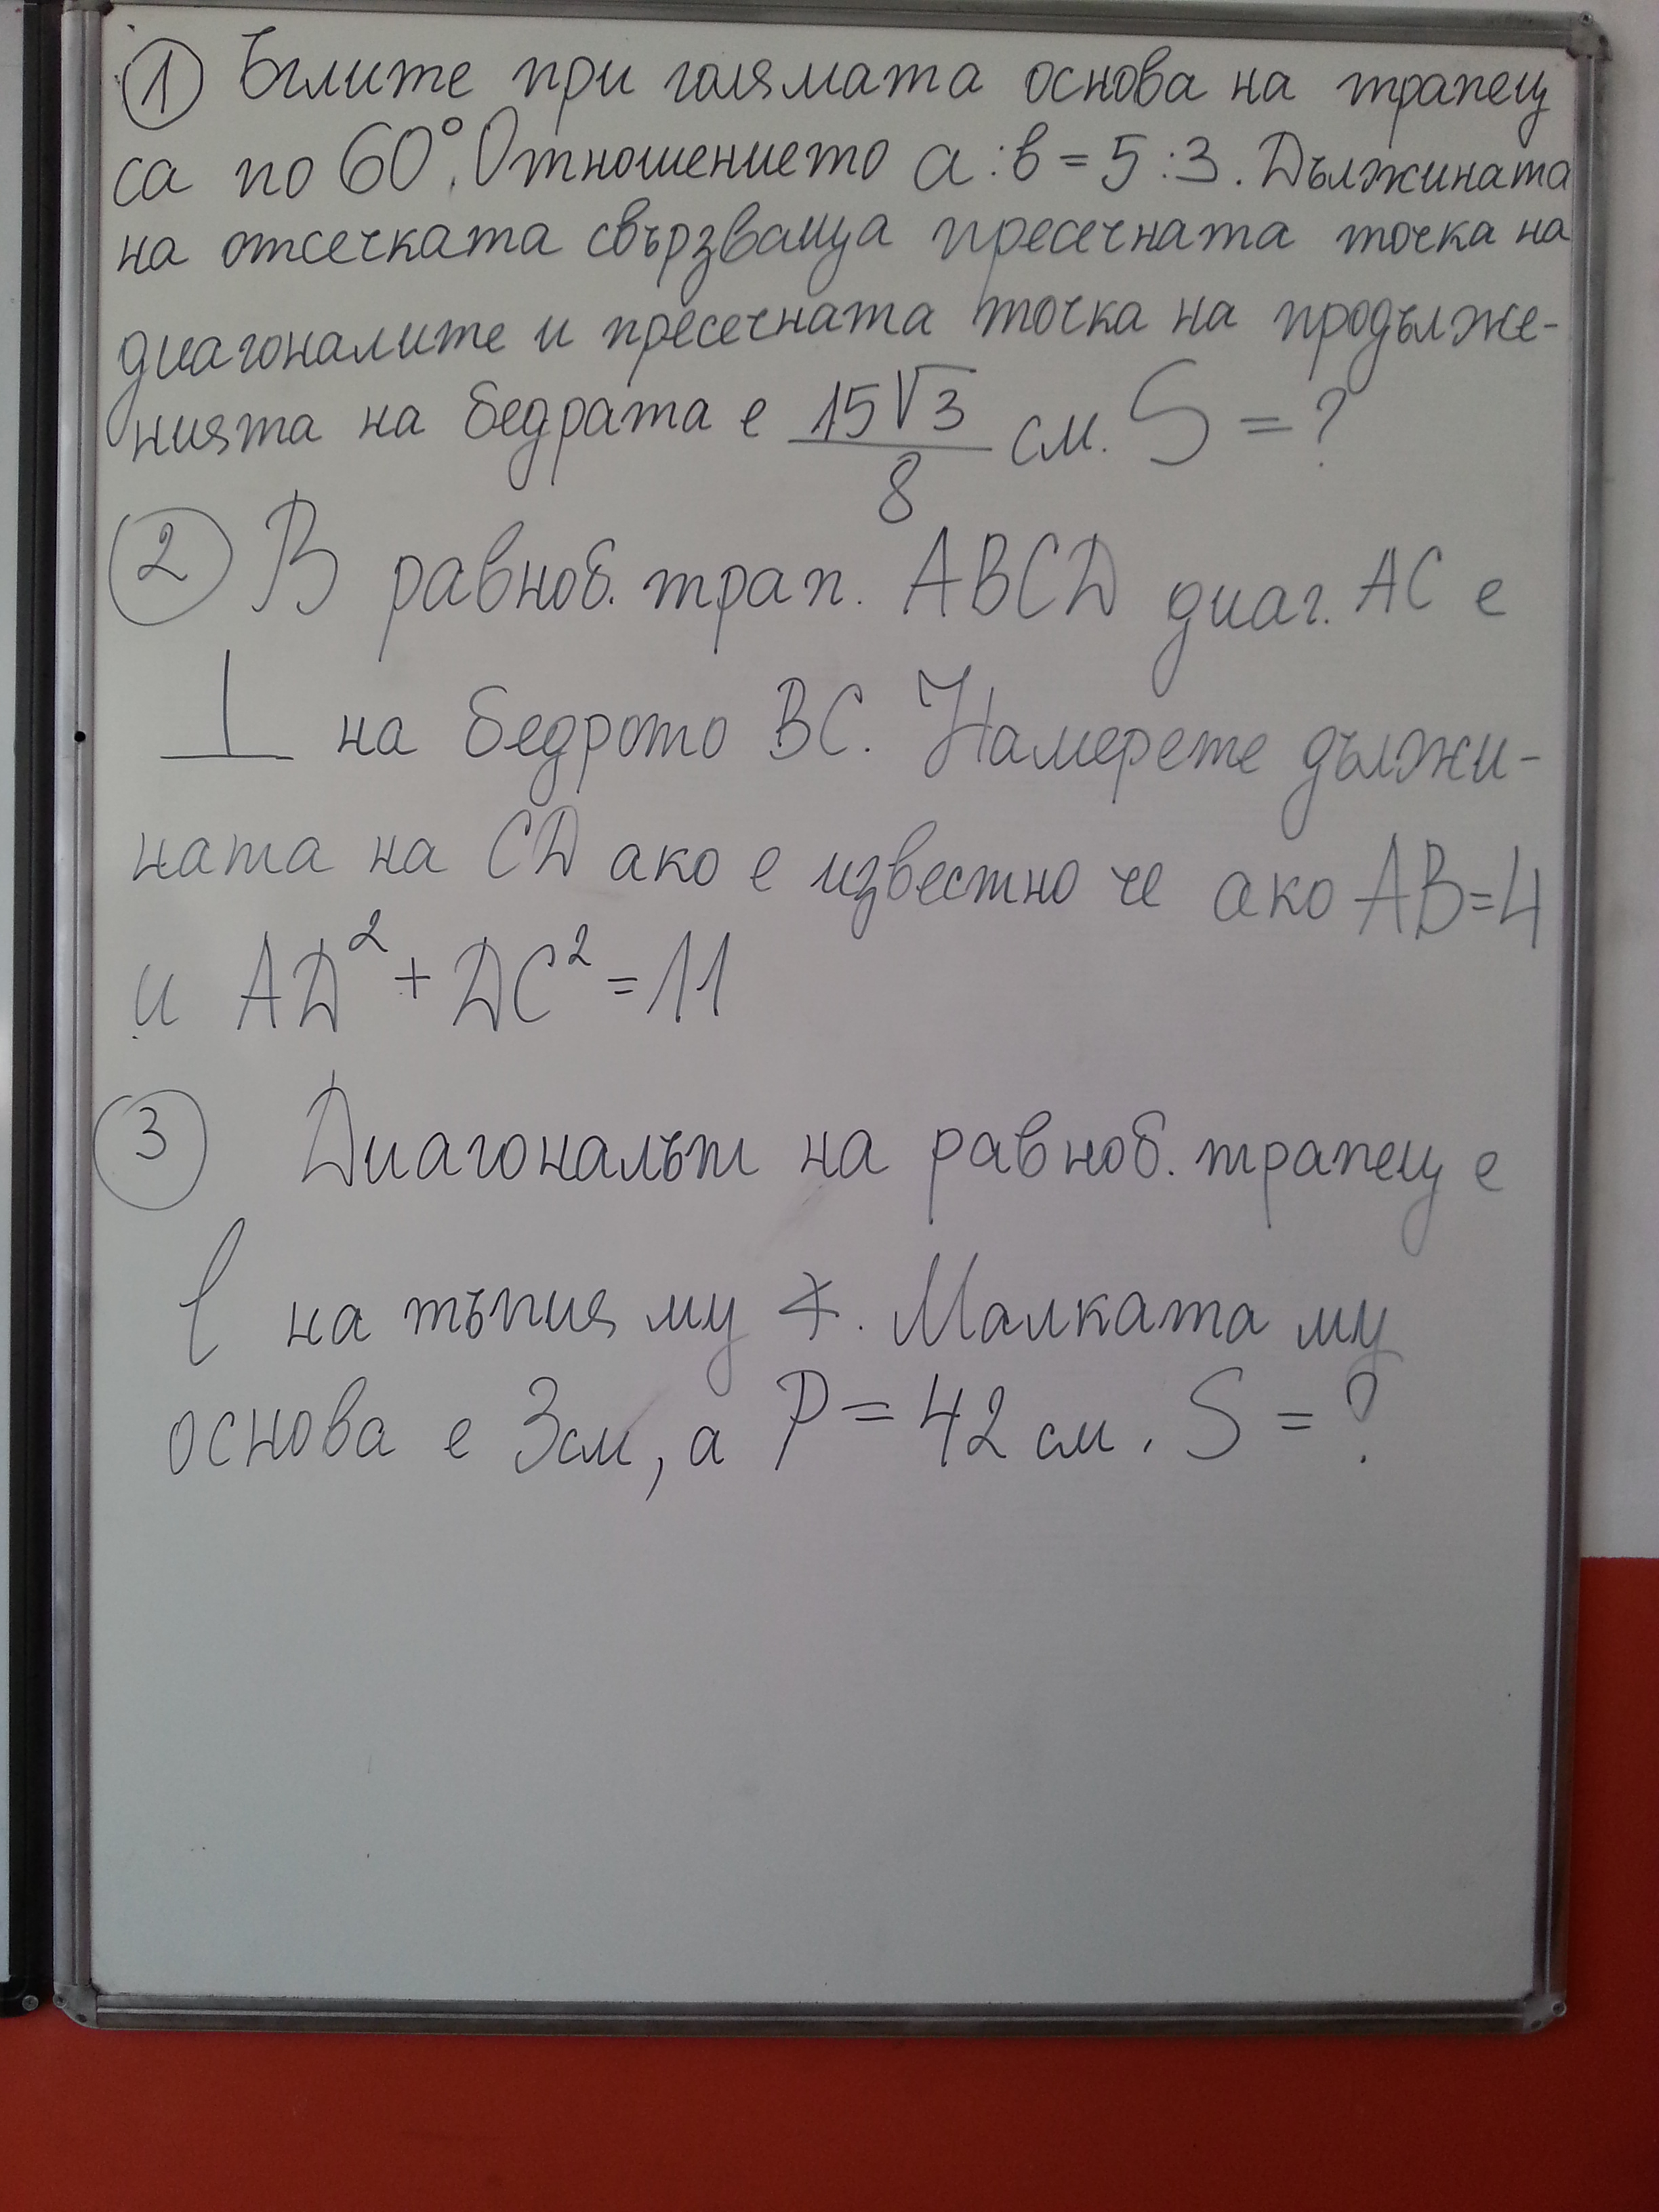 ① Ъглите при голямата основа на трапец
са по 60°. Отношението a:b = 5:3. Дължината
на отсечката свързваща пресечната точка на
диагоналите и пресечната точка на продълже-
нията на бедрата е 15√3/8 см. S = ?
② В равноб. трап. ABCD диаг. AC е
⊥ на бедрото BC. Намерете дължи-
ната на CD ако е известно че ако AB=4
и AD² + DC² = 11
③ Диагоналът на равноб. трапец е
l на тъпия му ∢. Малката му
основа е 3см, а P = 42 см. S = ?